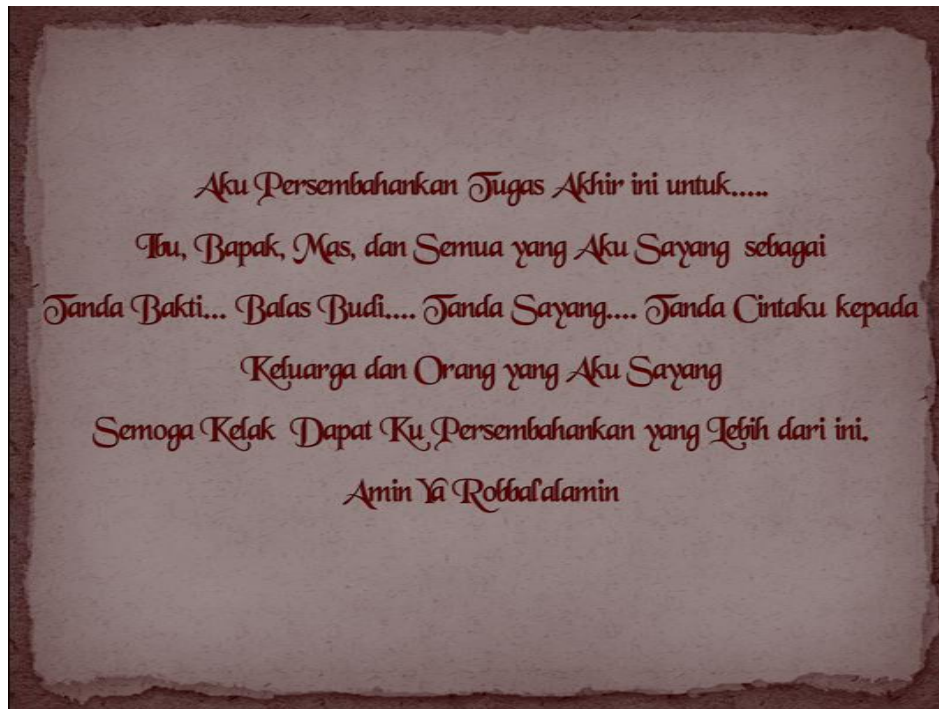 Aku Persembahankan Tugas Akhir ini untuk.....
Ibu, Bapak, Mas, dan Semua yang Aku Sayang sebagai
Tanda Bakti... Balas Budi.... Tanda Sayang.... Tanda Cintaku kepada
Keluarga dan Orang yang Aku Sayang
Semoga Kelak Dapat Ku Persembahankan yang Lebih dari ini.
Amin Ya Robbal'alamin